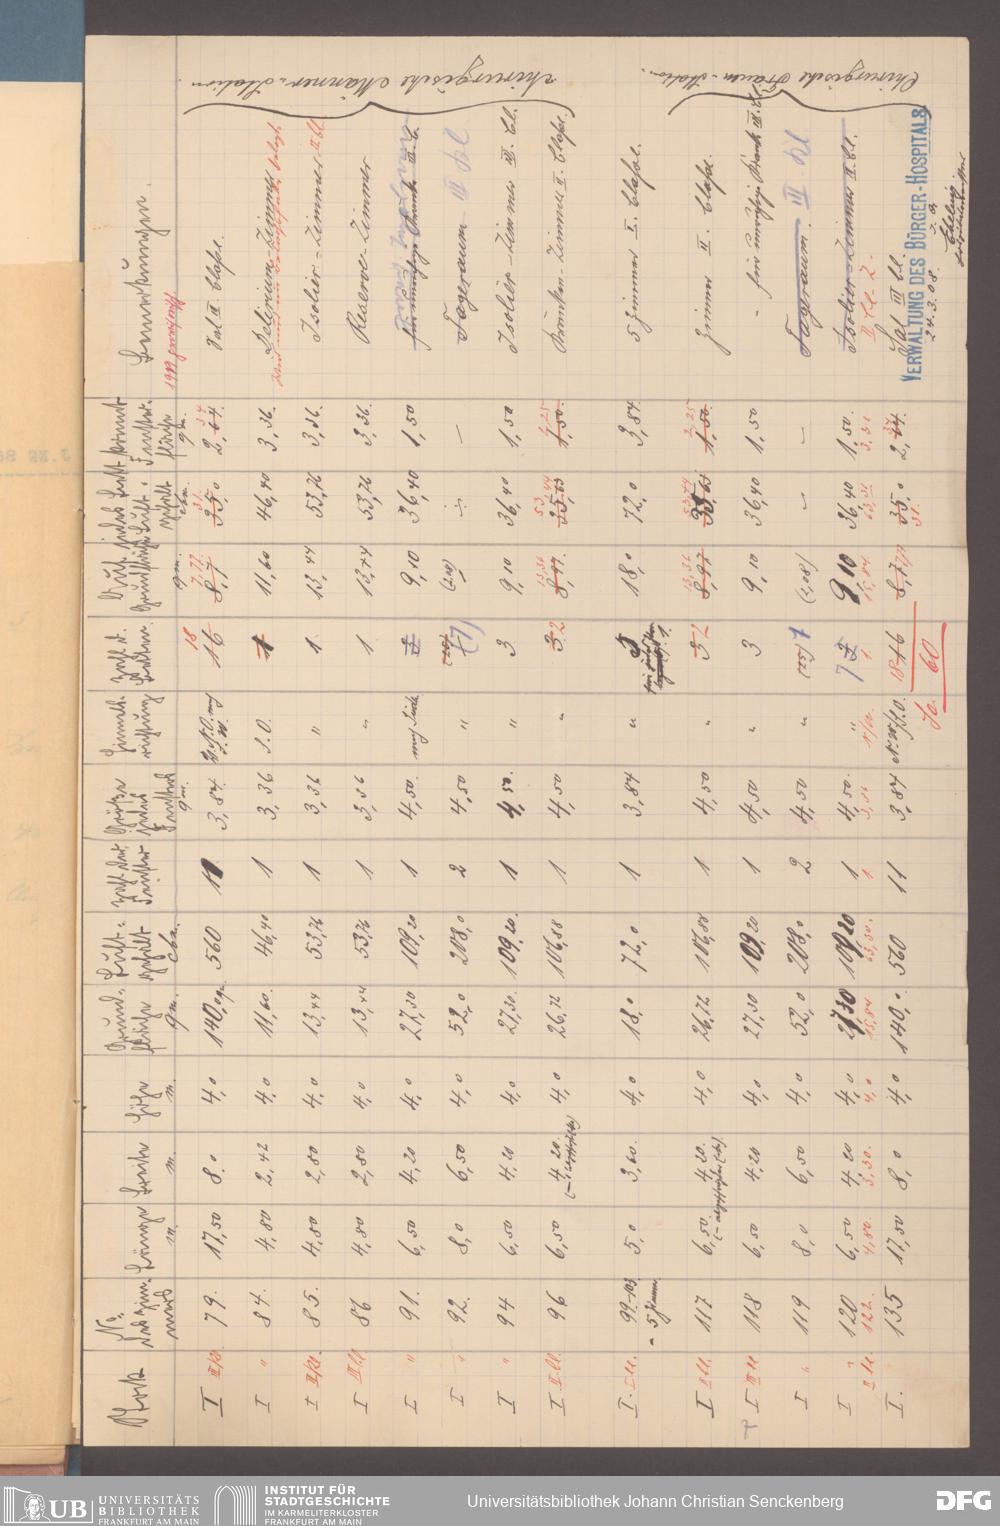 Stock
No. des Zimmers
Länge m.
Breite m.
Höhe m.
Grundfläche qm.
Luftgehalt cbm.
Zahl der Fenster
Größe jedes Fensters qm.
Himmelsrichtung
Zahl d. Betten
Bemerkungen.
I III Kl. 79. 17,50 8,0 4,0 140,0 qm. 560 11 3,84. 18 16 7,77 8,7 31. 35,0 2,64. Sal III Classe.
I " 84. 4,80 2,42 4,0 11,60. 46,40 1 3,36 S.O. 1 11,60 46,40 3,36. Delirium-Zimmer
I II Kl. 85. 4,80 2,80 4,0 13,44 53,76 1 3,36 " 1 13,44 53,76 3,36. Isolier-Zimmer II Cl.
I III Cl 86 4,80 2,80 4,0 13,44 53,76 1 3,36 " 1 13,44 53,76 3,36. Reserve-Zimmer
I " 91. 6,50 4,20 4,0 27,30 109,20 1 4,50. 9,10 36,40 1,50
I " 92. 8,0 6,50 4,0 52,0 208,0 2 4,50 " — Tageraum III Kl
I " 94 6,50 4,20 4,0 27,30. 109,20. 1 4,50. " 3 9,10 36,40 1,50 Isolier-Zimmer III. Cl.
I II. Cl. 96 6,50 4,20. 4,0 26,72 106,88 1 4,50 " 3 2 13,36 8,97. 53,44 1,50. Kranken-Zimmer II. Classe.
I. I. Cl. 99-103 5,0 3,60. 4,0 18,0 72,0 1 3,84 " 18,0 72,0 3,84. 5 Zimmer I. Classe.
= 5 Zimmer
I II Cl. 117 6,50. 4,20. 4,0 26,72 106,88 1 4,50 " 3 2 13,36 8,97 53,44 2,25 1,50. Zimmer II. Classe.
I III Cl 118 6,50 4,20 4,0 27,30 109,20 1 4,50 " 3 9,10 36,40 1,50
I " 119 8,0 6,50 4,0 52,0 208,0 2 4,50 " — — Tageraum. III Kl
I " 120 6,50 4,20 4,0 27,30 109,20 1 4,50. " 9,10 36,40 1,50. Isolier-Zimmer II. Cl.
II Cl. 122. 4,80. 3,30. 4,0 15,84 63,36. 1 3,36 1. 15,84 63,36 3,36 II Cl. 2.
I. 135 17,50 8,0 4,0 140,0. 560 11 3,84 18 16 35,0 31. 2,64. Sal III Cl.
Sa. 60
chirurgische Männer-Station.
Chirurgische Frauen-Station.
VERWALTUNG DES BÜRGER-HOSPITALS
24.3.08.
UB UNIVERSITÄTS
BIBLIOTHEK
FRANKFURT AM MAIN
INSTITUT FÜR
STADTGESCHICHTE
IM KARMELITERKLOSTER
FRANKFURT AM MAIN
Universitätsbibliothek Johann Christian Senckenberg
DFG